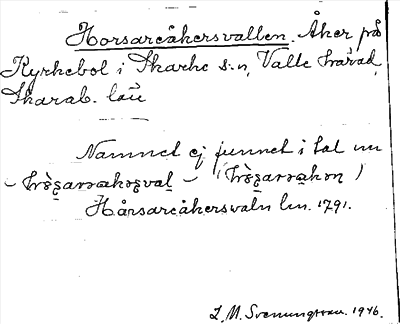 Horsareåkersvallen. Åker på
Kyrkebol i Skarke s:n, Valle härad,
Skarab. län
Namnet ej funnet i tal nu
Hårsareåkersvaln lm. 1791.
L. M. Svenungsson. 1946.